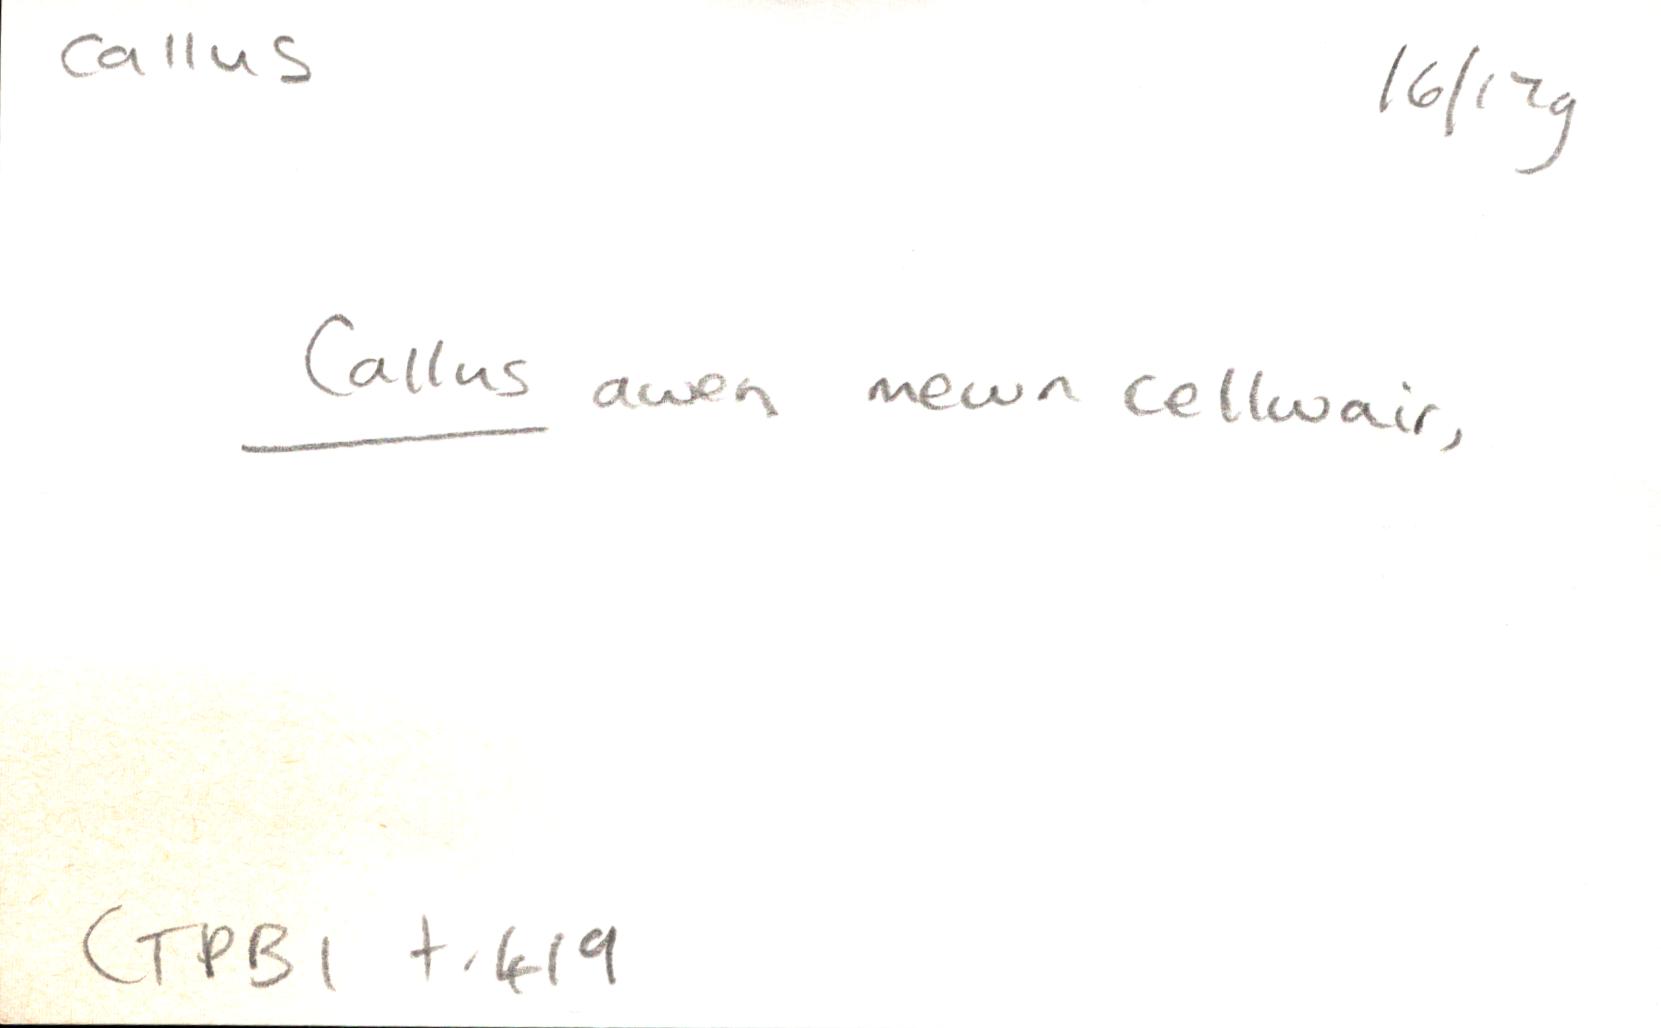 callus 16/17g
Callus awen mewn cellwair,
CTPB1 t.419